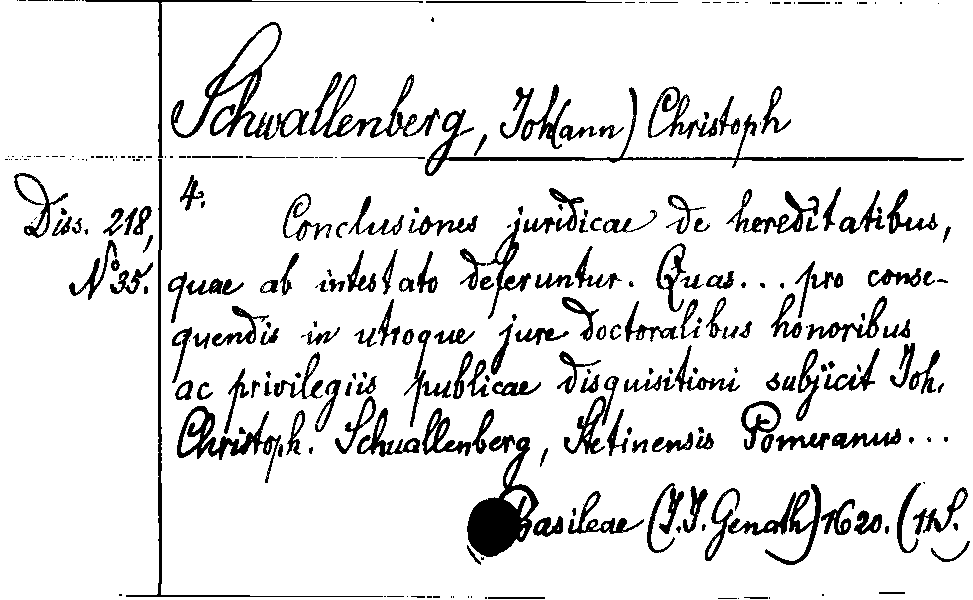 Schwallenberg, Joh(ann) Christoph
Diss. 218,
No 35.
4.
Conclusiones juridicae de hereditatibus,
quae ab intestato deferuntur. Quas... pro conse-
quendis in utroque jure doctoralibus honoribus
ac privilegiis publicae disquisitioni subjicit Joh.
Christoph. Schwallenberg, Stetinensis Pomeranus...
Basileae (J.J. Genath) 1620. (11 S.